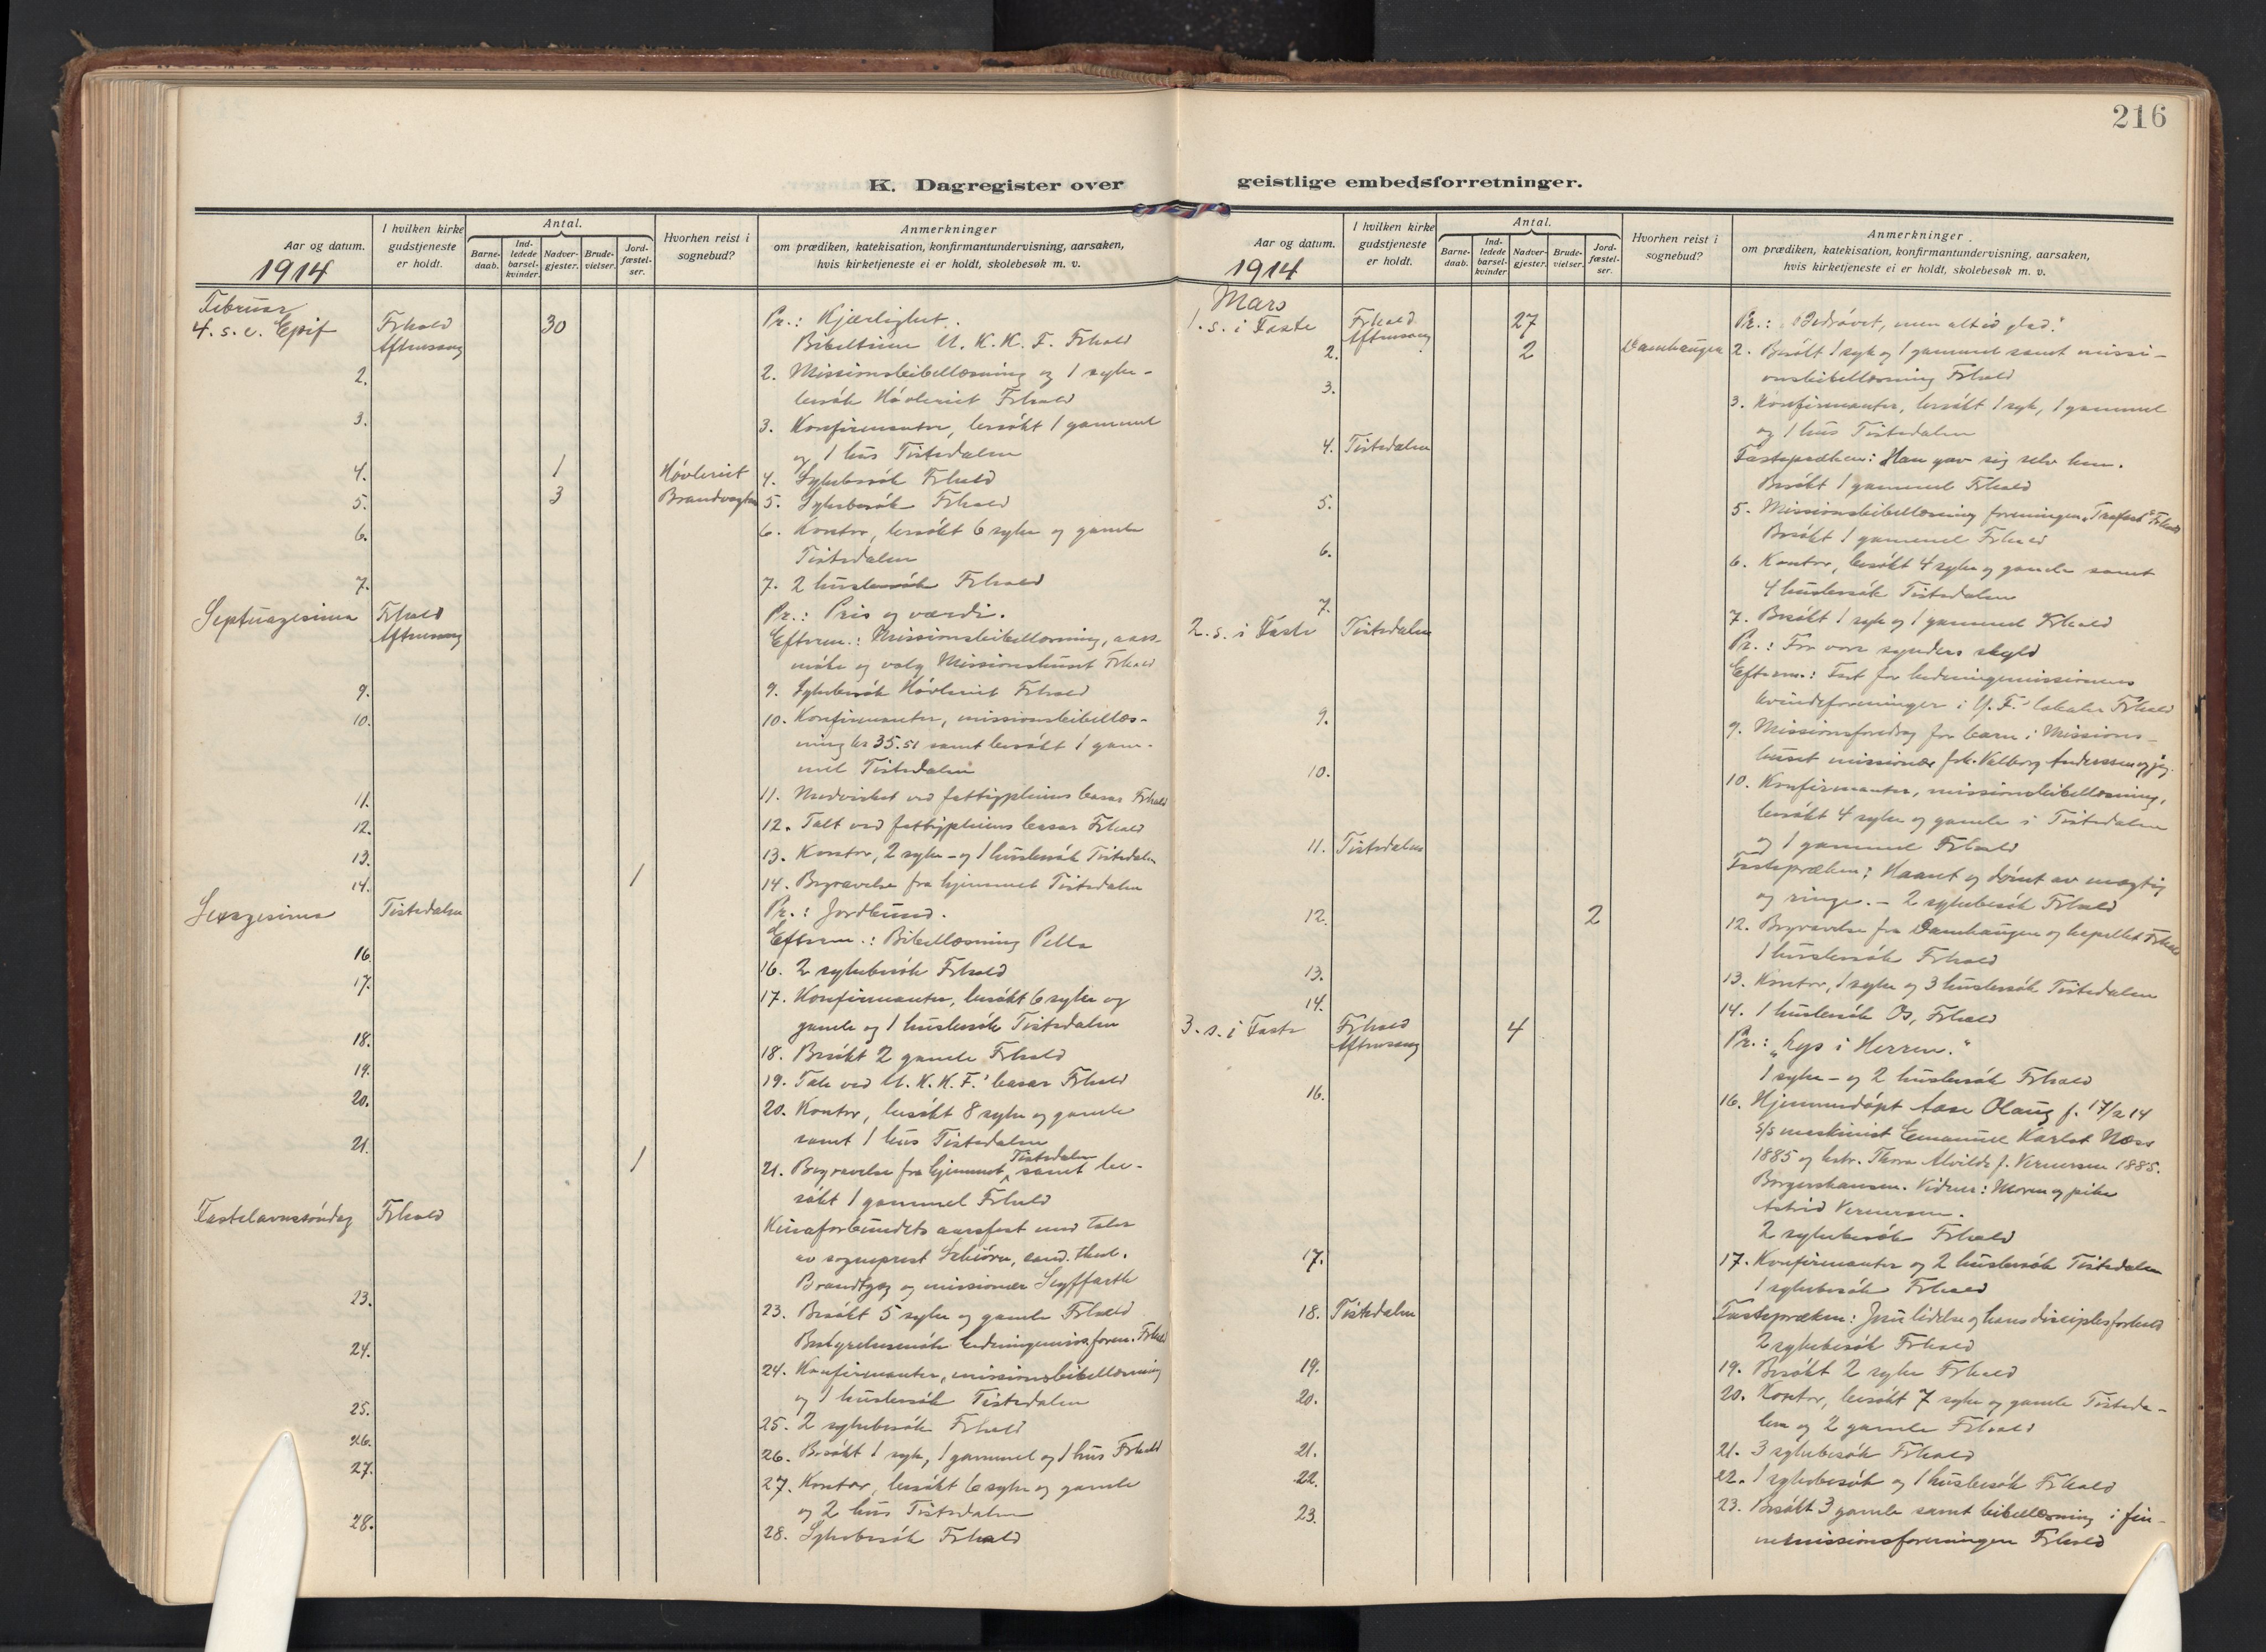 216
K. Dagregister over
Aar og datum.
1914
I hvilken kirke
gudstjeneste
er holdt.
Antal.
Barne-
daab.
Ind-
ledede
barsel-
kvinder.
Nadver-
gjester.
Brude-
vielser.
Jord-
fæstel-
ser.
Hvorhen reist i
sognebud?
Anmerkninger
om prædiken, katekisation, konfirmantundervisning, aarsaken,
hvis kirketjeneste ei er holdt, skolebesøk m. v.
Februar
4. s. e. Epif Frhald 30 Pr.: Kjærlighet.
Aftensang Bibeltime U. K. K. F. Frhald
2. 2. Missionsbibellæsning og 1 syke-
besøk Høvleriet Frhald
3. 3. Konfirmanter, besøkt 1 gammel
og 1 hus Tistedalen
4. 1 Høvleriet 4. Sykebesøk Frhald
5. 3 Brandvagten 5. Sykebesøk Frhald
6. 6. Kontor, besøkt 6 syke og gamle
Tistedalen
7. 7. 2 husbesøk Frhald
Septuagesima Frhald Pr.: Pris og værdi.
Aftensang Efterm.: Missionsbibellæsning, aars-
møte og valg Missionshuset Frhald
9. 9. Sykebesøk Høvleriet Frhald
10. 10. Konfirmanter, missionsbibellæs-
ning kr 35.51 samt besøkt 1 gam-
mel Tistedalen
11. 11. Medvirket ved fattigpleiens basar Frhald
12. 12. Talt ved fattigpleiens basar Frhald
13. 13. Kontor, 2 syke- og 1 husbesøk Tistedalen
14. 1 14. Begravelse fra hjemmet Tistedalen
Sexagesima Tistedalen Pr.: Jordbund.
Efterm.: Bibellæsning Pella
16. 16. 2 sykebesøk Frhald
17. 17. Konfirmanter, besøkt 6 syke og
gamle og 1 husbesøk Tistedalen
18. 18. Besøkt 2 gamle Frhald
19. 19. Tale ved U. K. K. F.' basar Frhald
20. 20. Kontor, besøkt 8 syke og gamle
samt 1 hus Tistedalen
21. 1 21. Begravelse fra hjemmet, Tistedalen samt be-
søkt 1 gammel Frhald
Fastelavnssøndag Frhald Kinaforbundets aarsfest med taler
av sogneprest Schiørn, cand. theol.
Brandtzæg og missionær Seyffarth
23. 23. Besøkt 5 syke og gamle Frhald
Bestyrelsesmøte hedningemiss.foren. Frhald
24. 24. Konfirmanter, missionsbibellæsning
og 1 husbesøk Tistedalen
25. 25. 2 sykebesøk Frhald
26. 26. Besøkt 1 syk, 1 gammel og 1 hus Frhald
27. 27. Kontor, besøkt 6 syke og gamle
og 2 hus Tistedalen
28. 28. Sykebesøk Frhald
geistlige embedsforretninger.
Aar og datum.
1914
I hvilken kirke
gudstjeneste
er holdt.
Antal.
Barne-
daab.
Ind-
ledede
barsel-
kvinder
Nadver-
gjester.
Brude-
vielser.
Jord-
fæstel-
ser.
Hvorhen reist i
sognebud?
Anmerkninger
om prædiken, katekisation, konfirmantundervisning, aarsaken,
hvis kirketjeneste ei er holdt, skolebesøk m. v.
Mars
1. s. i Faste Frhald 27 Pr.: "Bedrøvet, men altid glad."
Aftensang
2. 2 Damhaugen 2. Besøkt 1 syk og 1 gammel samt missi-
onsbibellæsning Frhald
3. 3. Konfirmanter, besøkt 1 syk, 1 gammel
og 1 hus Tistedalen
4. Tistedalen Fasteprædken: Han gav sig selv hen.
Besøkt 1 gammel Frhald
5. 5. Missionsbibellæsning foreningen "Trofast" Frhald
Besøkt 1 gammel Frhald
6. 6. Kontor, besøkt 4 syke og gamle samt
4 husbesøk Tistedalen
7. 7. Besøkt 1 syk og 1 gammel Frhald
2. s. i Faste Tistedalen Pr.: For vore synders skyld
Efterm.: Fest for hedningemissionens
kvindeforeninger i Y. F.' lokaler Frhald
9. 9. Missionsforedrag for barn i Missions-
huset missionær frk. Valborg Anderssen og jeg.
10. 10. Konfirmanter, missionsbibellæsning,
besøkt 4 syke og gamle i Tistedalen
og 1 gammel Frhald
11. Tistedalen Fasteprækn: Haanet og dømt av mægtig
og ringe. - 2 sykebesøk Frhald
12. 2 12. Begravelse fra Damhaugen og kapellet Frhald
1 husbesøk Frhald
13. 13. Kontor, 1 syke og 3 husbesøk Tistedalen
14. 14. 1 husbesøk Os, Frhald
3. s. i Faste Frhald 4 Pr.: "Lys i Herren."
Aftensang 1 syke- og 2 husbesøk Frhald
16. 16. Hjemmedøpt Aase Olaug f. 17/2 14
s/s maskinist Emanuel Karlot Næss
1885 og hstr. Thora Alvilde f. Vernersen 1885.
Borgershausen. Vidner: Moren og pike
Astrid Vernersen.
2 sykebesøk Frhald
17. 17. Konfirmanter og 2 husbesøk Tistedalen
1 sykebesøk Frhald
18. Tistedalen Fasteprækn: Jesu lidelse og hans disciples forhold
2 sykebesøk Frhald
19. 19. Besøkt 2 syke Frhald
20. 20. Kontor, besøkt 7 syke og gamle Tisteda-
len og 2 gamle Frhald
21. 21. 3 sykebesøk Frhald
22. 22. 1 sykebesøk og 1 husbesøk Frhald
23. 23. Besøkt 3 gamle samt bibellæsning i fin-
nemissionsforeningen Frhald